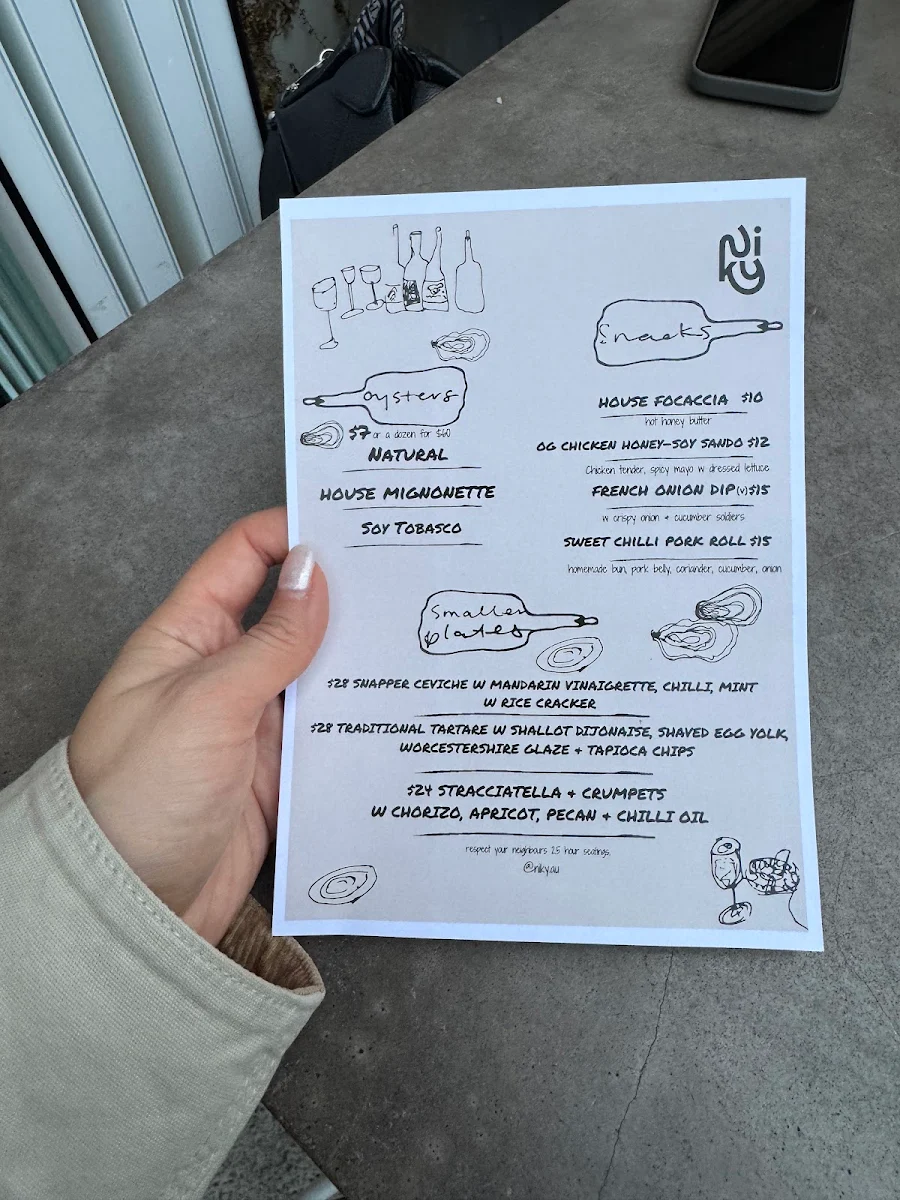 Niky
oysters
$7 or a dozen for $60
NATURAL
HOUSE MIGNONETTE
SOY TOBASCO
Snacks
HOUSE FOCACCIA $10
hot honey butter
OG CHICKEN HONEY-SOY SANDO $12
Chicken tender, spicy mayo w dressed lettuce
FRENCH ONION DIP (V) $15
w crispy onion + cucumber soldiers
SWEET CHILLI PORK ROLL $15
homemade bun, pork belly, coriander, cucumber, onion
Smaller
plates
$28 SNAPPER CEVICHE W MANDARIN VINAIGRETTE, CHILLI, MINT
W RICE CRACKER
$28 TRADITIONAL TARTARE W SHALLOT DIJONAISE, SHAVED EGG YOLK,
WORCESTERSHIRE GLAZE + TAPIOCA CHIPS
$24 STRACCIATELLA + CRUMPETS
W CHORIZO, APRICOT, PECAN + CHILLI OIL
respect your neighbours 2.5 hour seatings.
@niky.au